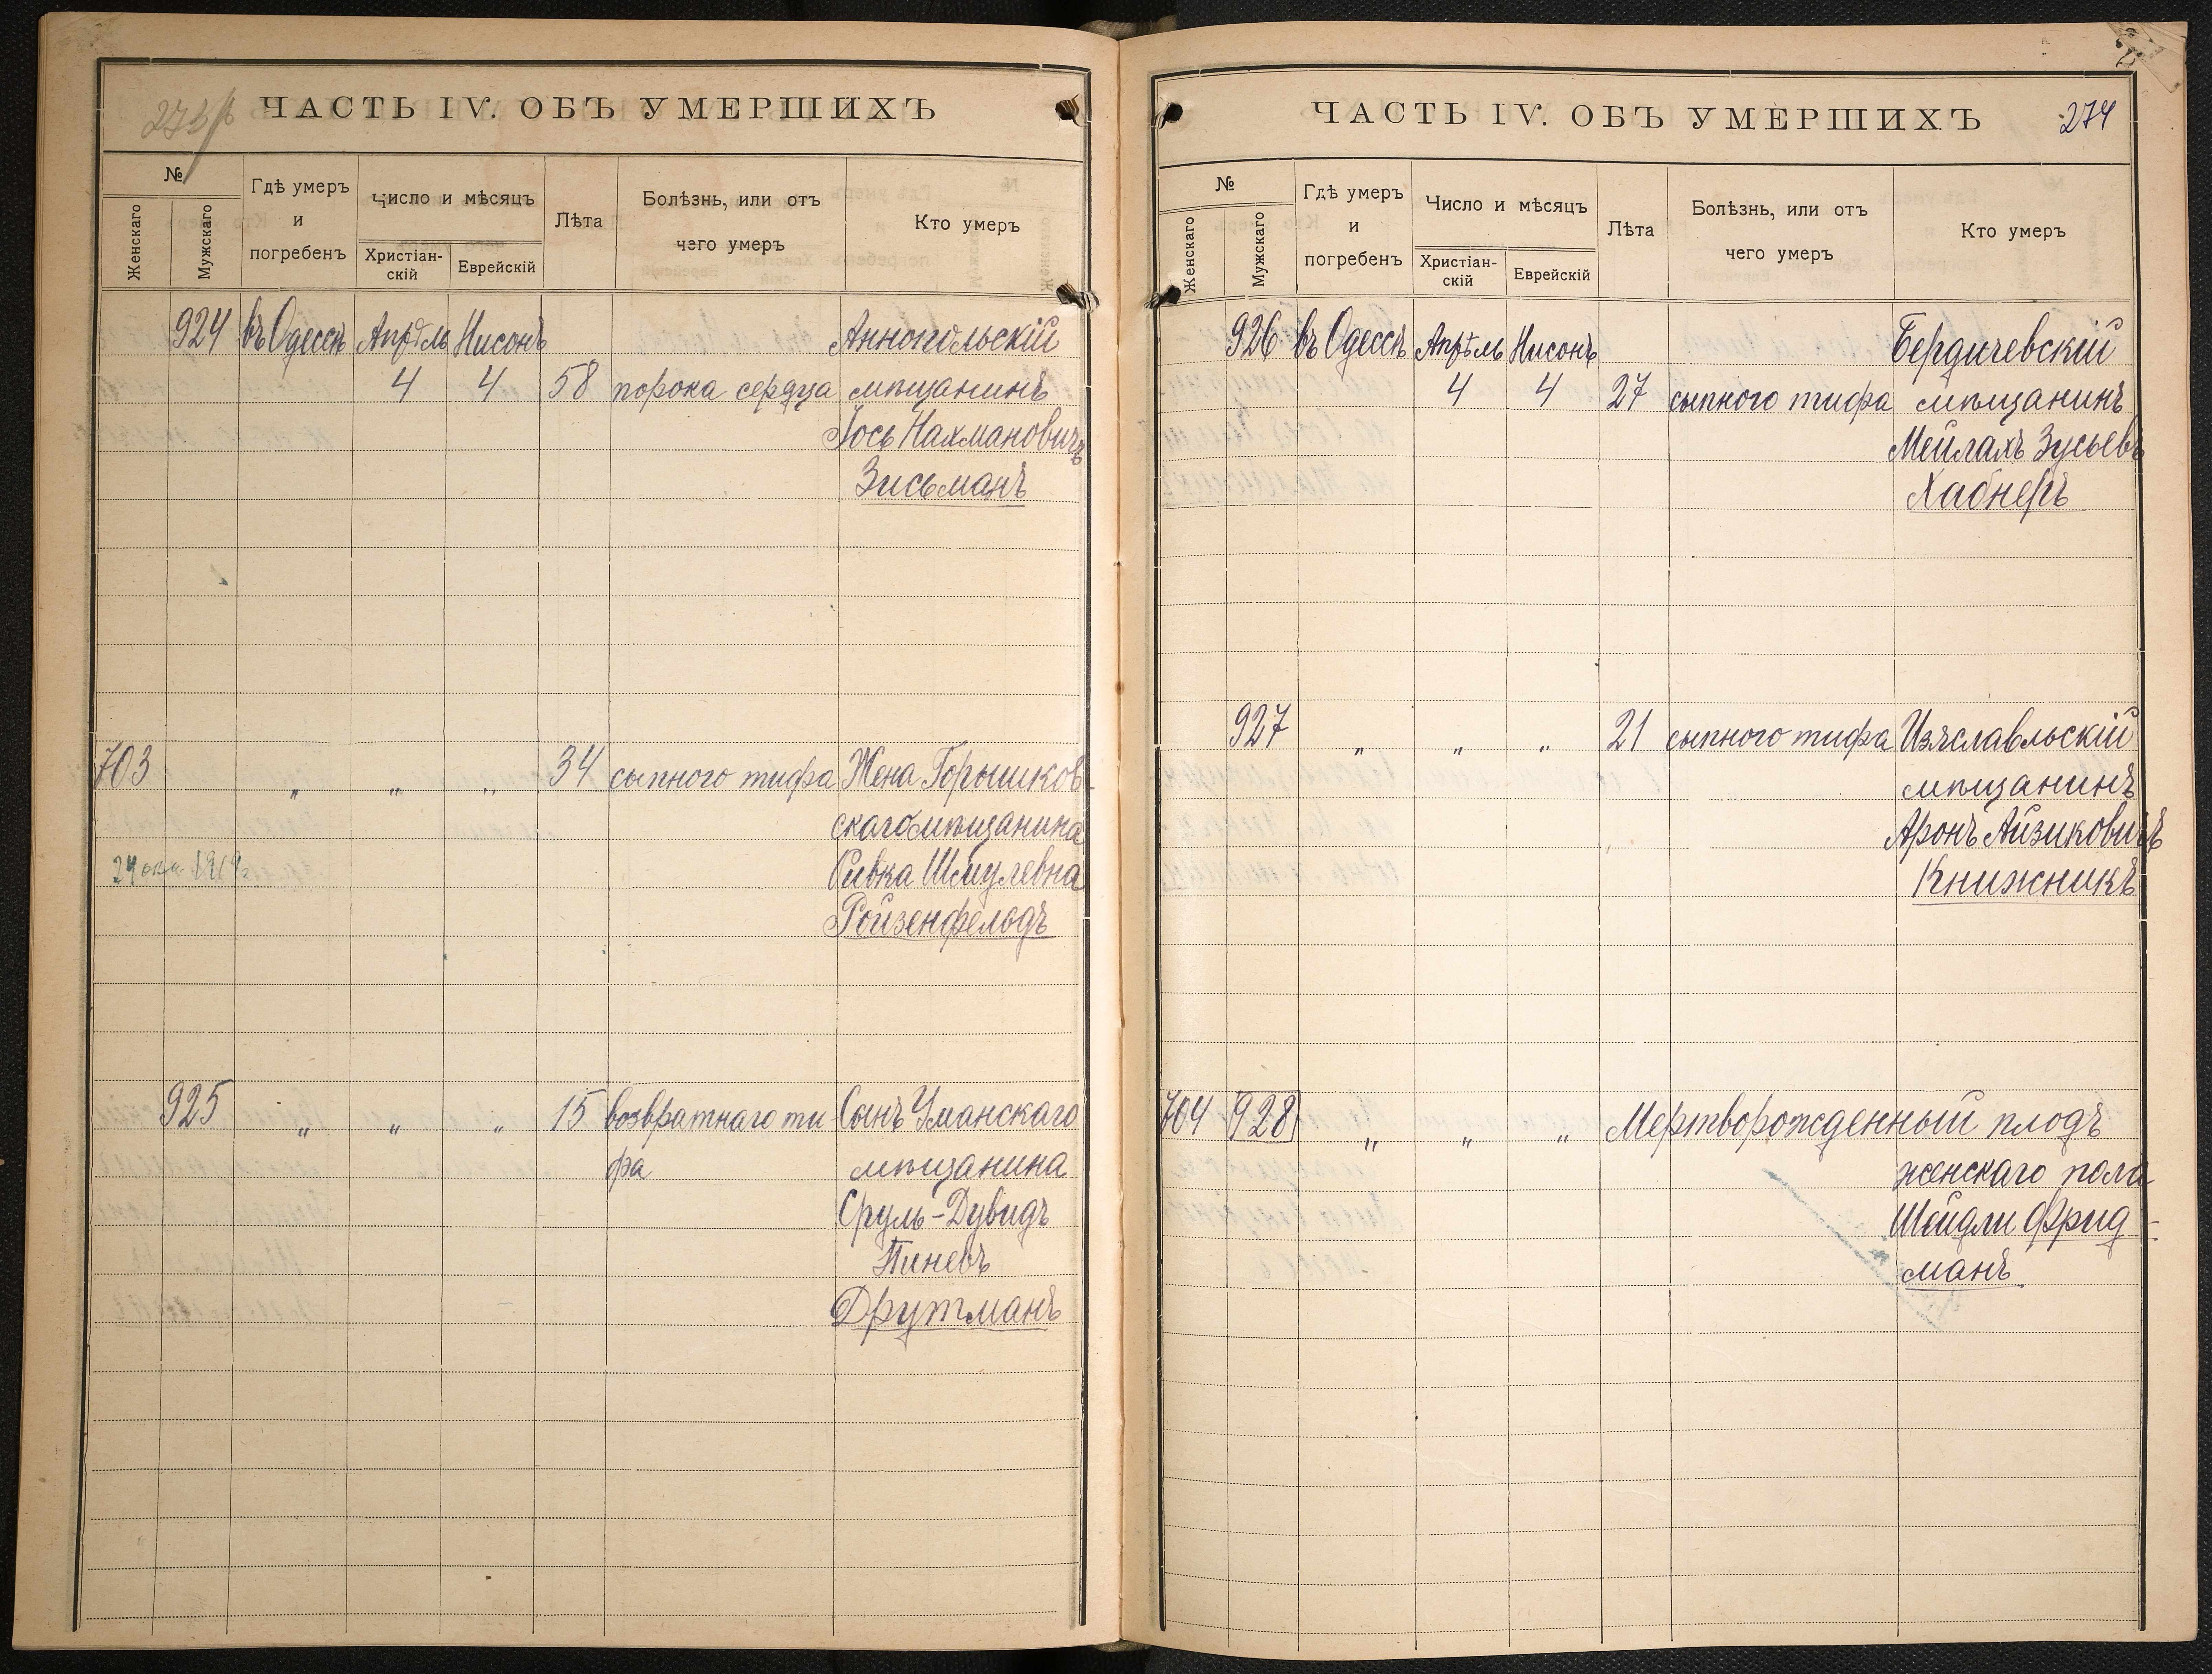 ЧАСТЬ IV. ОБЪ УМЕРШИХЪ
№
Женскаго
Мужскаго
Гдѣ умеръ и погребенъ
Число и мѣсяцъ
Христіан-скій
Еврейскій
Лѣта
Болѣзнь, или отъ чего умеръ
Кто умеръ
924 въ Одессѣ Апрѣль Нисонъ Аннопольскій
4 4 58 порока сердца мѣщанинъ
Іось Нахмановичъ
Зисьманъ
703 „ „ „ 34 сыпного тифа Жена Горышков-
скаго мѣщанина
24 1919
Ривка Шмулевна
Ройзенфельдъ
925 „ „ „ 15 возвратнаго ти Сынъ Уманскаго
фа мѣщанина
Сруль-Дувидъ
Пиневъ
Друтманъ
ЧАСТЬ IV. ОБЪ УМЕРШИХЪ 274
№
Женскаго
Мужскаго
Гдѣ умеръ и погребенъ
Число и мѣсяцъ
Христіан-скій
Еврейскій
Лѣта
Болѣзнь, или отъ чего умеръ
Кто умеръ
926 въ Одессѣ Апрѣль Нисонъ Бердичевскій
4 4 27 сыпного тифа мѣщанинъ
Мейлахъ Зусьевъ
Хабнеръ
927 „ „ „ 21 сыпного тифа Изяславльскій
мѣщанинъ
Аронъ Айзиковичъ
Книжникъ
704 928 „ „ „ Мертворожденный плодъ
женскаго пола
Шейдли Фрид-
манъ